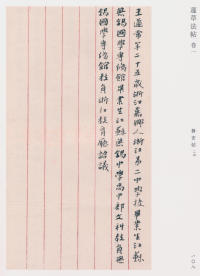 蓮草法帖 卷一
王蘧常年二十五歲浙江嘉興人浙江第二中學校畢業生江蘇
無錫國學專修館畢業生江蘇無錫中學高中部文科教員無
錫國學專修館教員浙江教育廳諮議
一〇八